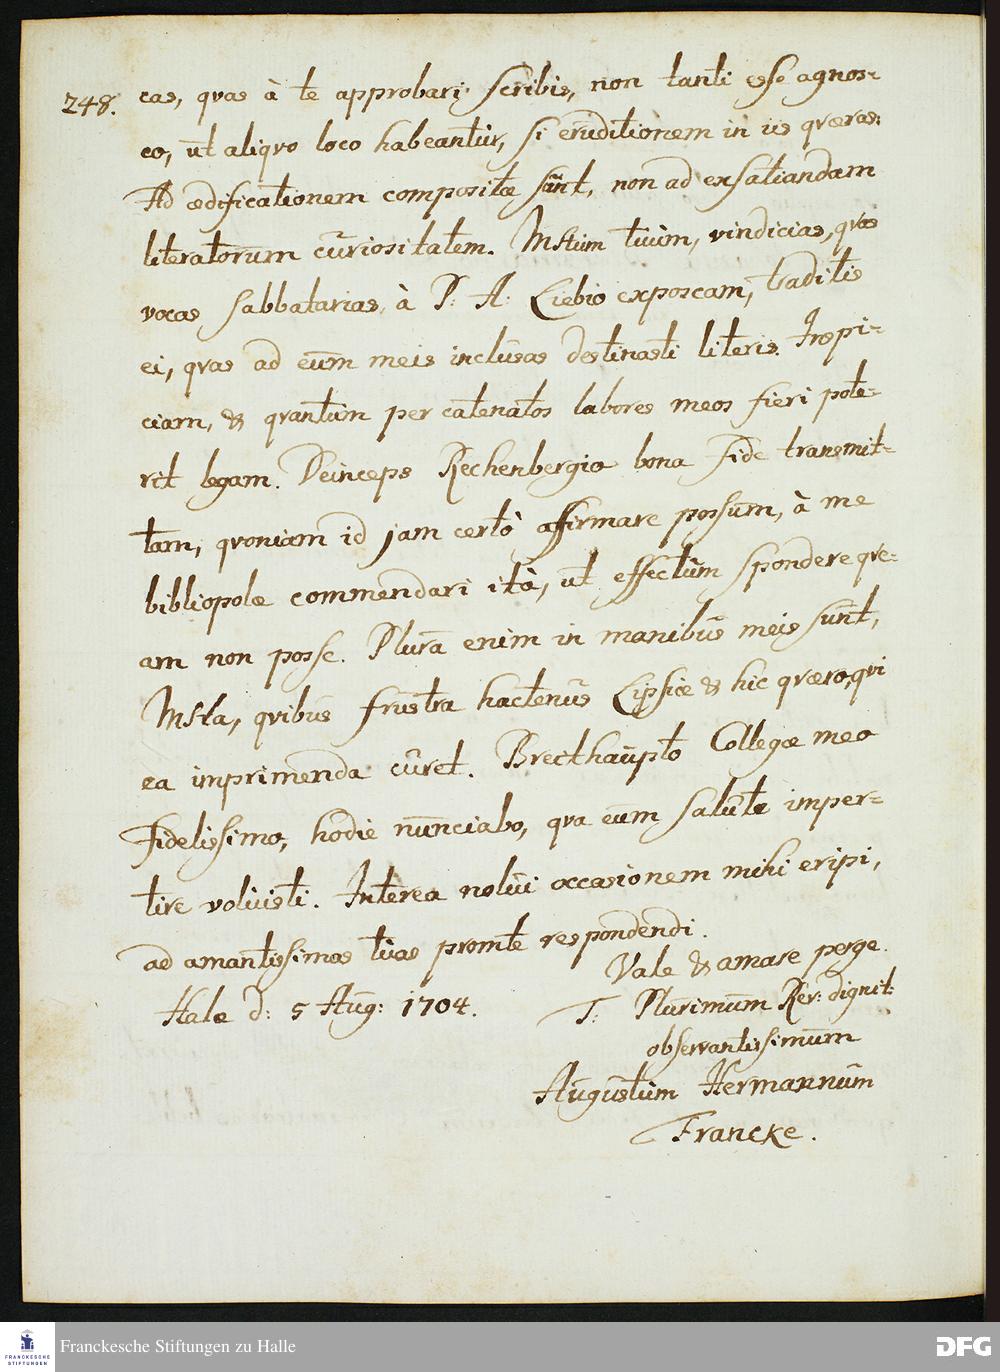 248.
cas, qvas à te approbari scribis, non tanti esse agnos-
co, ut aliqvo loco habeantur, si eruditionem in iis qværas.
Ad ædificationem compositæ sunt, non ad exsatiandam
literatorum curiositatem. Mstum tuum, vindicias, qvas
vocas sabbatarias, à P: A: Liebio exposcam, traditis
ei, qvas ad eum meis inclusas destinasti literis. Inspi-
ciam, & qvantum per catenatos labores meos fieri pote-
rit legam. Deinceps Rechenbergio bona fide transmit-
tam, qvoniam id jam certò affirmare possum, à me
bibliopolæ commendari ità, ut effectum spondere qve-
am non posse. Plura enim in manibus meis sunt,
Msta, qvibus frustra hactenus Lipsiæ & hic qværo, qvi
ea imprimenda curet. Breithaupto Collegæ meo
fidelissimo, hodie nunciabo, qva eum salute imper-
tire voluisti. Interea nolui occasionem mihi eripi,
ad amantissimas tuas promte respondendi.
Vale & amare perge.
Halæ d: 5 Aug: 1704.
T: Plurimum Rev: dignit:
observantissimum
Augustum Hermannum
Francke.
FRANCKESCHE
STIFTUNGEN
Franckesche Stiftungen zu Halle
DFG